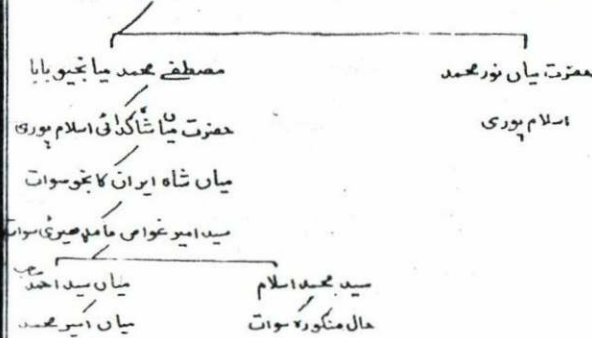 حضرت میاں نور محمد
اسلام پوری
مصطفےٰ محمد میانجیو بابا
حضرت میاں شاگدائی اسلام پوری
میاں شاہ ایران کانجو سوات
سید امیر غواص
سید محمد اسلام
حال منگورہ سوات
میاں سید احمد صاحب
میاں امیر محمد